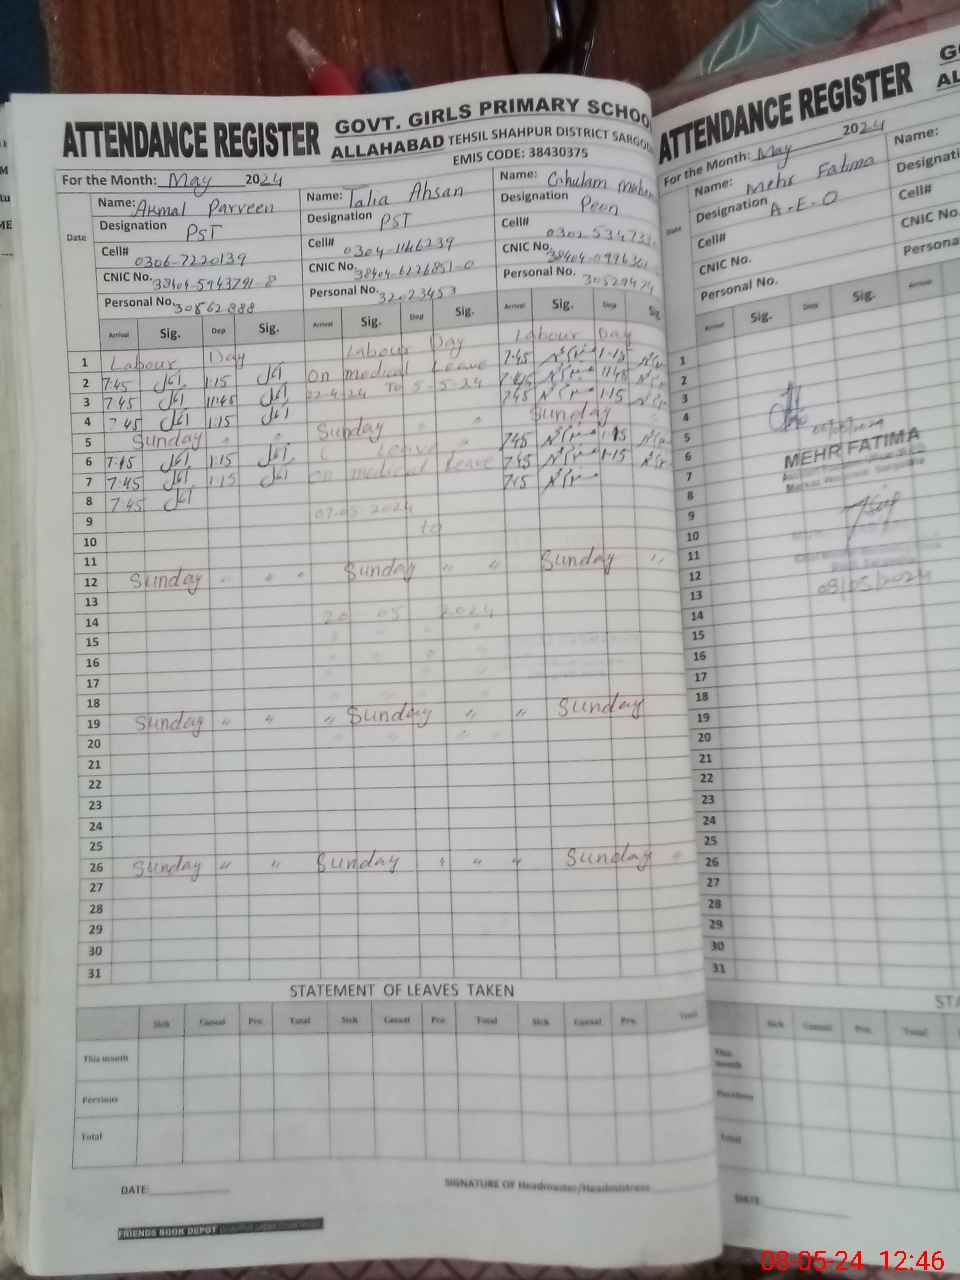 ATTENDANCE REGISTER
GOVT. GIRLS PRIMARY SCHOO
ALLAHABAD TEHSIL SHAHPUR DISTRICT SARGO
EMIS CODE: 38430375
For the Month: May 2024
Name: Akmal Parveen
Designation PST
Cell# 0306-7220139
CNIC No. 38404-5943791-8
Personal No. 30862888
Name: Talia Ahsan
Designation PST
Cell# 0304-1146239
CNIC No. 38404-6126851-0
Personal No. 32023453
Name: Ghulam
Designation Peon
Cell# 0302-534733
CNIC No.
Personal No. 30529474
Date Arrival Sig. Dep Sig. Arrival Sig. Dep Sig. Arrival Sig. Dep Sig.
1 Labour Day Labour Day Labour Day
2 7:45 1:15 On medical Leave 7:45 1:15
3 7:45 11:45 22-4-24 To 5-5-24 7:45 11:45
4 7:45 1:15 7:45 1:15
5 Sunday " " Sunday " " Sunday
6 7:45 1:15 Leave 7:45 1:15
7 7:45 1:15 on medical Leave 7:45 1:15
8 7:45 7:45
9 07-05-2024
10 to
11
12 Sunday " " " Sunday " " Sunday "
13
14 20-05-2024
15
16
17
18
19 Sunday " " " Sunday " " Sunday
20
21
22
23
24
25
26 Sunday " " Sunday " " " Sunday "
27
28
29
30
31
STATEMENT OF LEAVES TAKEN
Sick Casual Pre. Total Sick Casual Pre. Total Sick Casual Pre. Total
This month
Pervious
Total
DATE:
SIGNATURE OF Headmaster/Headmistress
FRIENDS BOOK DEPOT
ATTENDANCE REGISTER
For the Month: May 2024
Name: Mehr Fatima
Designation A-E-O
Cell#
CNIC No.
Personal No.
Name:
Cell#
CNIC No.
Personal
Date Arrival Sig. Dep Sig. Arrival
1
2
3
4
5
6
MEHR FATIMA
7
8
9
10
11
12
13 08/05/2024
14
15
16
17
18
19
20
21
22
23
24
25
26
27
28
29
30
31
Sick Casual Pre. Total Sick
This month
Pervious
Total
DATE
08-05-24 12:46